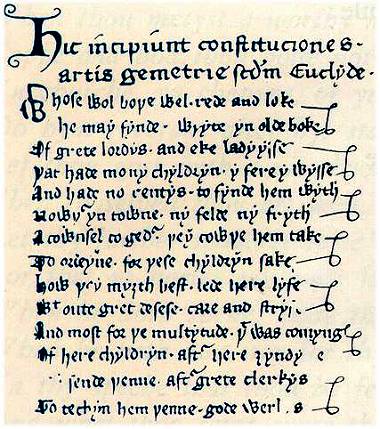 Hic incipiunt constituciones
artis gemetrie scdm Euclyde.
Whose wol boþe wel rede and loke
he may fynde wryte yn olde boke
Of grete lordys and eke ladyysse
þat had mony chyldryn y fere y wysse
And hade no rentys to fynde hem wyth
Nowþr yn towne ny felde ny fryth
A cownsel togedr þey cowþe hem take
To ordeyne for þese chyldryn sake
how þey myȝth best lede here lyfe
Wt oute gret desese care and stryf
And most for þe multytude þt was comyng
Of here chyldryn aftr here ȝyndy
sende þenne aftr grete clerkys
To techyn hem þenne gode werkys